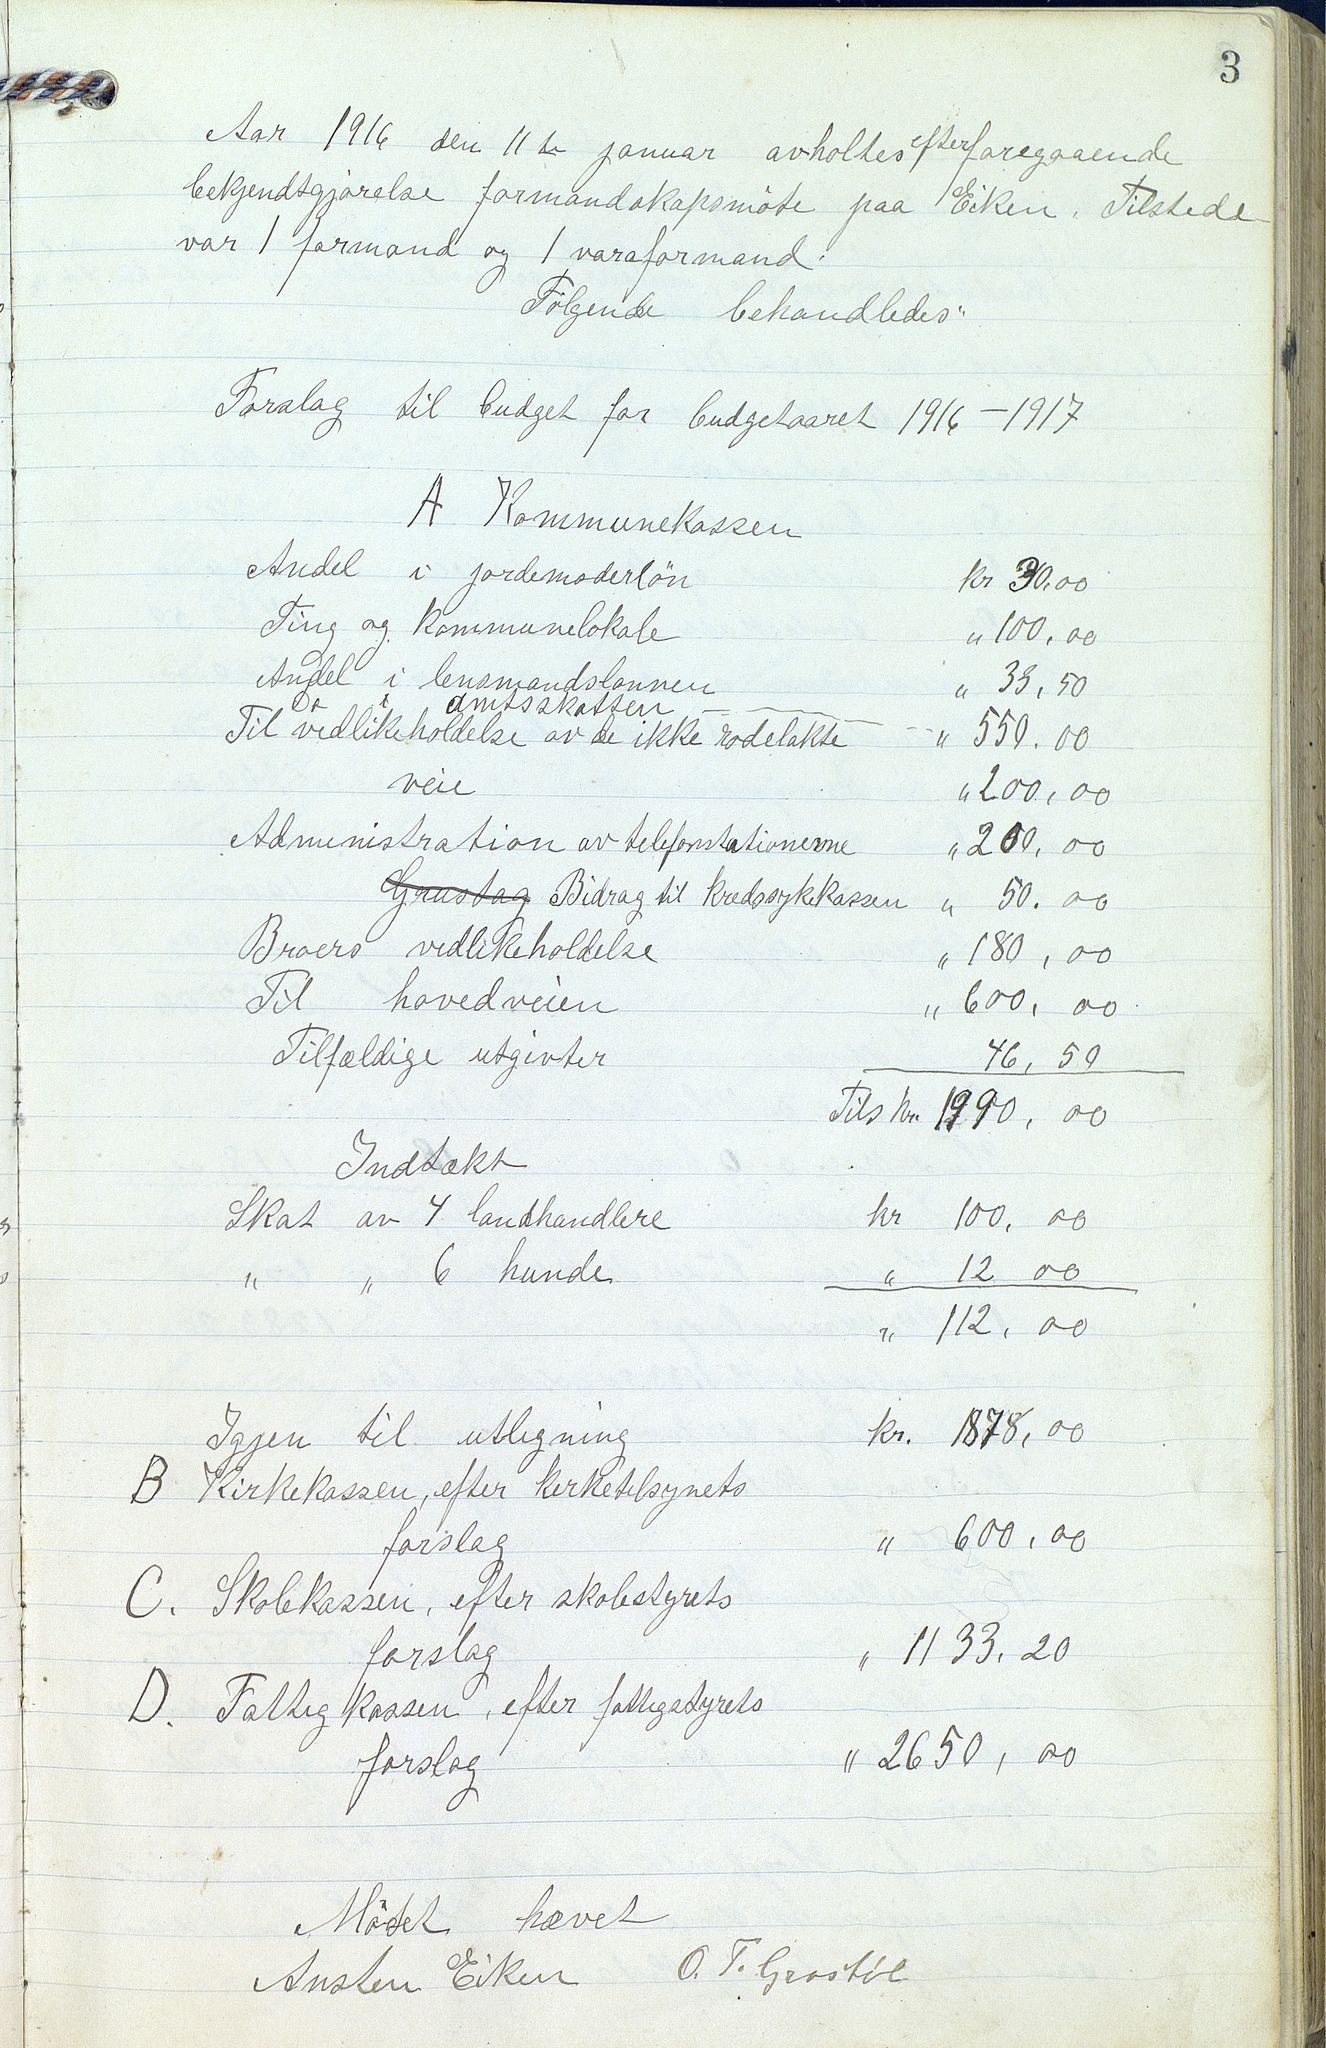 3
Aar 1916 den 11te januar avholtes efter foregaaende
bekjendtgjørelse formandskapsmöte paa Eiken. Tilstede
var 1 formand og 1 varaformand.
Følgende behandledes:
Forslag til budget for budgetaaret 1916 – 1917
A Kommunekassen
Andel i jordemoderlön kr 30,00
Ting og kommunelokale " 100,00
Andel i lensmandslønnen " 33,50
Do i amtsskatten " 550,00
Til vedlikeholdelse av de ikke rodelakte
veie " 200,00
Administration av telefonstationerne " 200,00
Grustag Bidrag til kredssykekassen " 50.00
Broers vedlikeholdelse " 180,00
Til hovedveien " 600,00
Tilfældige utgivter 46,50
Tils kr. 1990,00
Indtækt
Skat av 4 landhandlere kr 100,00
" " 6 hunde " 12 00
" 112,00
Igjen til utligning kr. 1878,00
B Kirkekassen, efter kirketilsynets
forslag " 600,00
C. Skolekassen, efter skolestyrets
forslag " 1133,20
D. Fattigkassen, efter fattigstyrets
forslag " 2650,00
Mödet hævet
Ansten Eiken O. T. Grostøl